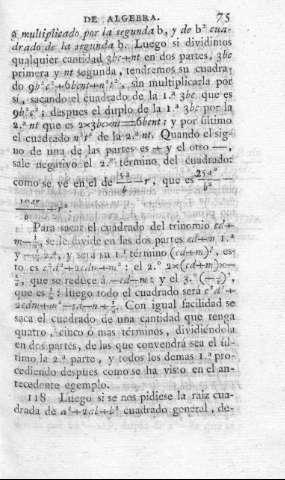 DE ALGEBRA. 75
a multiplicado por la segunda b, y de b² cua-
drado de la segunda b. Luego si dividimos
qualquier cantidad 3bc+nt en dos partes, 3bc
primera y nt segunda, tendremos su cuadra-
do 9b²c²+6bcnt+n²t², sin multiplicarla por
sí, sacando el cuadrado de la 1.ª 3bc que es
9b²c²; despues el duplo de la 1.ª 3bc por la
2.ª nt que es 2×3bc×nt=6bcnt; y por último
el cuadrado n²t² de la 2.ª nt. Quando el sig-
no de una de las partes es + y el otro —,
sale negativo el 2.º término del cuadrado:
como se vé en el de 5a/b — r, que es 25a²/b²
Para sacar el cuadrado del trinomio cd+
m—½, se le divide en las dos partes cd+m 1.ª
y —½ 2.ª, y será su 1.º término (cd+m)², es-
to es c²d²+2cdm+m²; el 2.º 2×(cd+m)×—
½, que se reduce á —cd—m; y el 3.º (—½)²,
que es ¼; luego todo el cuadrado será c²d²+
2cdm+m²—cd—m+¼. Con igual facilidad se
saca el cuadrado de una cantidad que tenga
quatro, cinco ó mas términos, dividiéndola
en dos partes, de las que convendrá sea el úl-
timo la 2.ª parte, y todos los demas 1.ª pro-
cediendo despues como se ha visto en el an-
tecedente egemplo.
118 Luego si se nos pidiese la raiz cua-
drada de a²+2ab+b² cuadrado general, de-